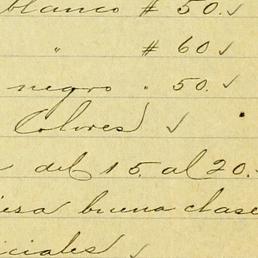 blanco # 50. ✓
" # 60 ✓
negro " 50. ✓
Colores ✓
del 15. al 20.
buena clase
✓